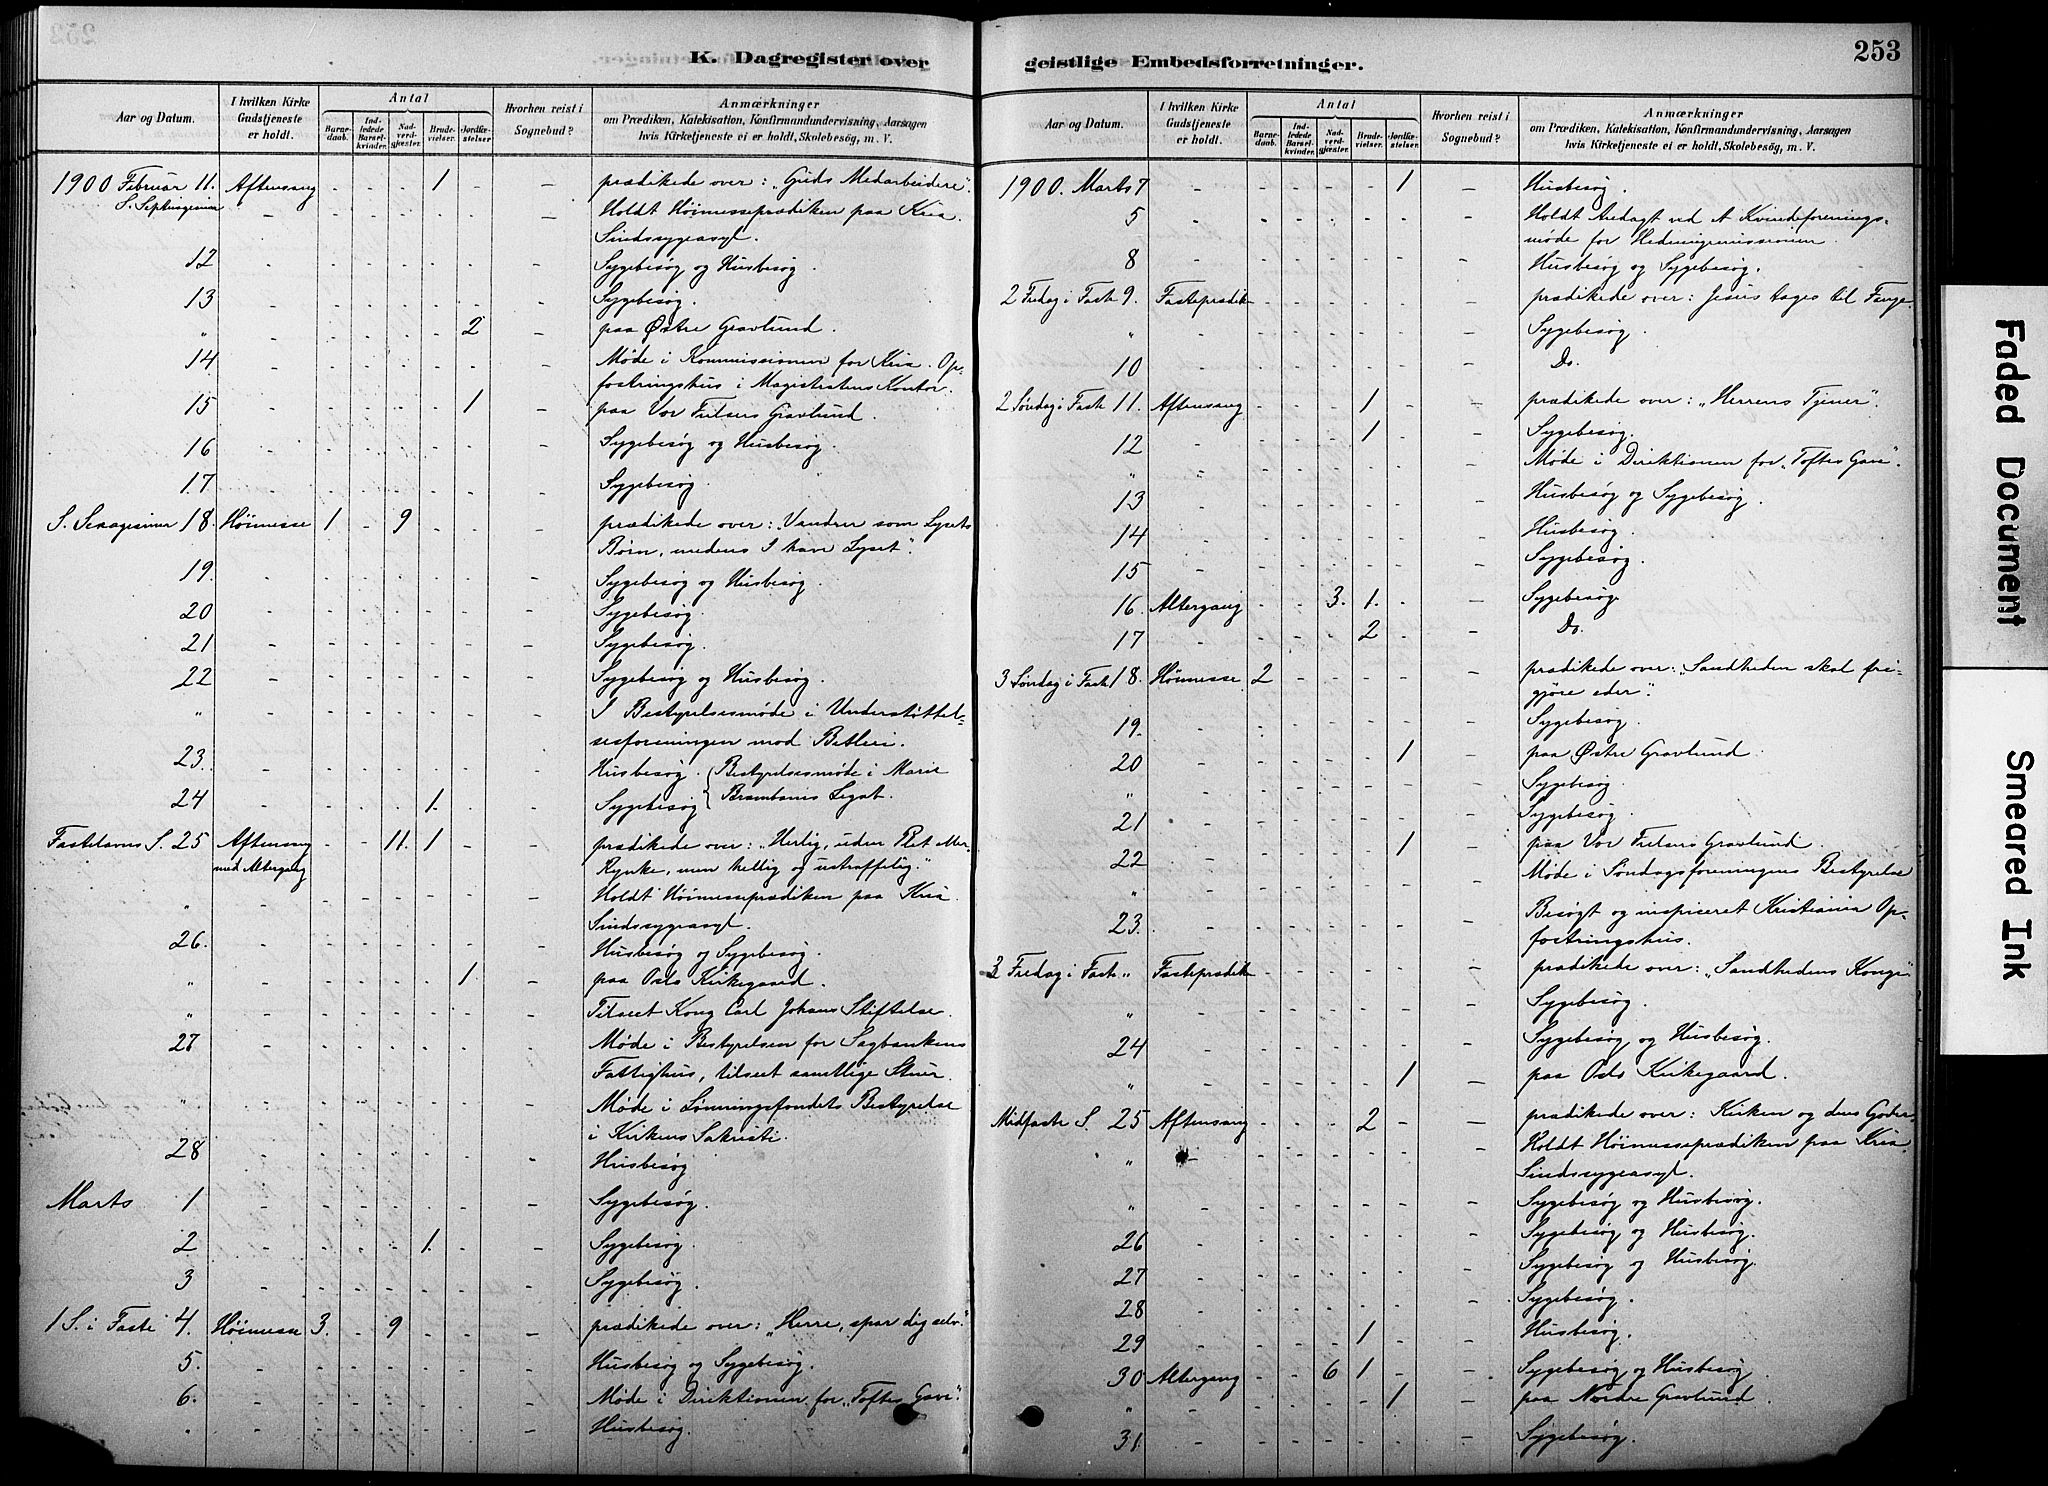 K. Dagregister over
Aar og Datum.
I hvilken Kirke Gudstjeneste er holdt.
Antal
Barnedaab.
Indledede Barselkvinder.
Nadverdgjæster.
Brudevielser.
Jordfæstelser
Hvorhen reist i Sognebud?
Anmærkninger
om Prædiken, Katekisation, Konfirmandundervisning, Aarsagen
hvis Kirketjeneste ei er holdt, Skolebesøg, m. V.
1900 Februar 11. Aftensang - - - 1 - - prædikede over: "Guds Medarbeidere".
S. Septuagesima - - - - - - - Holdt Høimesseprædiken paa Kria.
Sindssygeasyl.
12 - - - - - - - Sygebesøg og Husbesøg.
13 - - - - - - - Sygebesøg.
" - - - - - 2 - paa Østre Gravlund.
14 - - - - - - - Møde i Kommissionen for Kria. Op-
fostringshus i Magistratens Kontor.
15 - - - - - 1 - paa Vor Frelsers Gravlund.
16 - - - - - - - Sygebesøg og Husbesøg.
17 - - - - - - - Sygebesøg.
S. Sexagesima 18. Høimesse 1 - 9 - - - prædikede over: "Vandrer som Lysets
Børn, medens I have Lyset".
19. - - - - - - - Sygebesøg og Husbesøg.
20 - - - - - - - Sygebesøg.
21 - - - - - - - Sygebesøg.
22 - - - - - - - Sygebesøg og Husbesøg.
" - - - - - - - I Bestyrelsesmøde i Understøttel-
sesforeningen mod Betleri.
23. - - - - - - - Husbesøg. Bestyrelsesmøde i Marie
24 - - - - 1. - - Sygebesøg Legat.
Fastelavns S. 25 Aftensang - - 11. 1 - - prædikede over: "Herlig, uden Plet eller
med Altergang Rynke, men hellig og ustraffelig."
" - - - - - - - Holdt Høimesseprædiken paa Kria.
Sindssygeasyl.
26. - - - - - - - Husbesøg og Sygebesøg.
" - - - - - 1. - paa Oslo Kirkegaard.
" - - - - - - - Tilseet Kong Carl Johans Stiftelse.
27 - - - - - - - Møde i Bestyrelsen for Sagbankens
Fattighus, tilseet samtlige Stuer.
" - - - - - - - Møde i Lønningsfondets Bestyrelse
i Kirkens Sakristi.
28 - - - - - - - Husbesøg
Marts 1 - - - - - - - Sygebesøg.
2 - - - - 1. - - Sygebesøg.
3 - - - - - - - Sygebesøg.
1 S. i Faste 4. Høimesse 3. - 9 - - - prædikede over: "Herre, spar dig selv."
5. - - - - - - - Husbesøg og Sygebesøg.
6. - - - - - - - Møde i Direktionen for "Toftes Gave".
" - - - - - - - Husbesøg.
geistlige Embedsforretninger.
253
Aar og Datum.
I hvilken Kirke Gudstjeneste er holdt.
Antal
Barnedaab.
Indledede Barselkvinder.
Nadverdgjæster.
Brudevielser.
Jordfæstelser.
Hvorhen reist i Sognebud?
Anmærkninger
om Prædiken, Katekisation, Konfirmandundervisning, Aarsagen
hvis Kirketjeneste ei er holdt, Skolebesøg, m. V.
1900. Marts 7 - - - - - 1 - Husbesøg.
5 - - - - - - - Holdt Andagt ved et Kvindeforenings-
møde for Hedningemissionen.
8 - - - - - - - Husbesøg og Sygebesøg.
2 Fredag i Faste 9. Fasteprædik - - - - - - prædikede over: Jesus tages til Fange.
" - - - - - - - Sygebesøg.
10 - - - - - - - Do.
2 Søndag i Faste 11. Aftensang - - - 1 - - prædikede over: "Herrens Tjener"
12 - - - - 1 - - Sygebesøg.
" - - - - - - - Møde i Direktionen for "Toftes Gave".
13 - - - - - - - Husbesøg og Sygebesøg.
14 - - - - - - - Husbesøg.
15 - - - - - - - Sygebesøg.
16 Altergang - - 3. 1. - - Sygebesøg.
17 - - - - 2 - - Do.
3 Søndag i Faste 18. Høimesse 2 - - - - - prædikede over: "Sandheden skal fri-
gjøre eder".
19. - - - - - - - Sygebesøg.
20 - - - - - 1 - paa Østre Gravlund.
" - - - - - - - Sygebesøg.
21 - - - - - - - Sygebesøg.
22 - - - - - 1 - paa Vor Frelsers Gravlund.
" - - - - - - - Møde i Søndagsforeningens Bestyrelse
23. - - - - - - - Besøgt og inspiceret Kristiania Op-
fostringshus.
3 Fredag i Faste " Fasteprædik - - - - - - prædikede over: "Sandhedens Konge"
" - - - - - - - Sygebesøg.
24 - - - - - - - Sygebesøg og Husbesøg.
" - - - - - 1 - paa Oslo Kirkegaard.
Midfaste S. 25 Aftensang - - - 2 - - prædikede over: Kirken og dens Goder.
" - - - - - - - Holdt Høimesseprædiken paa Kria
Sindssygeasyl.
" - - - - - - - Sygebesøg og Husbesøg.
26 - - - - - - - Sygebesøg og Husbesøg.
27 - - - - - - - Sygebesøg og Husbesøg.
28 - - - - - - - Sygebesøg.
29 - - - - 1 - - Husbesøg.
30 Altergang - - 6 1 - - Sygebesøg og Husbesøg
" - - - - - 1 - paa Nordre Gravlund
31 - - - - - - - Sygebesøg.
Faded Document
Smeared Ink